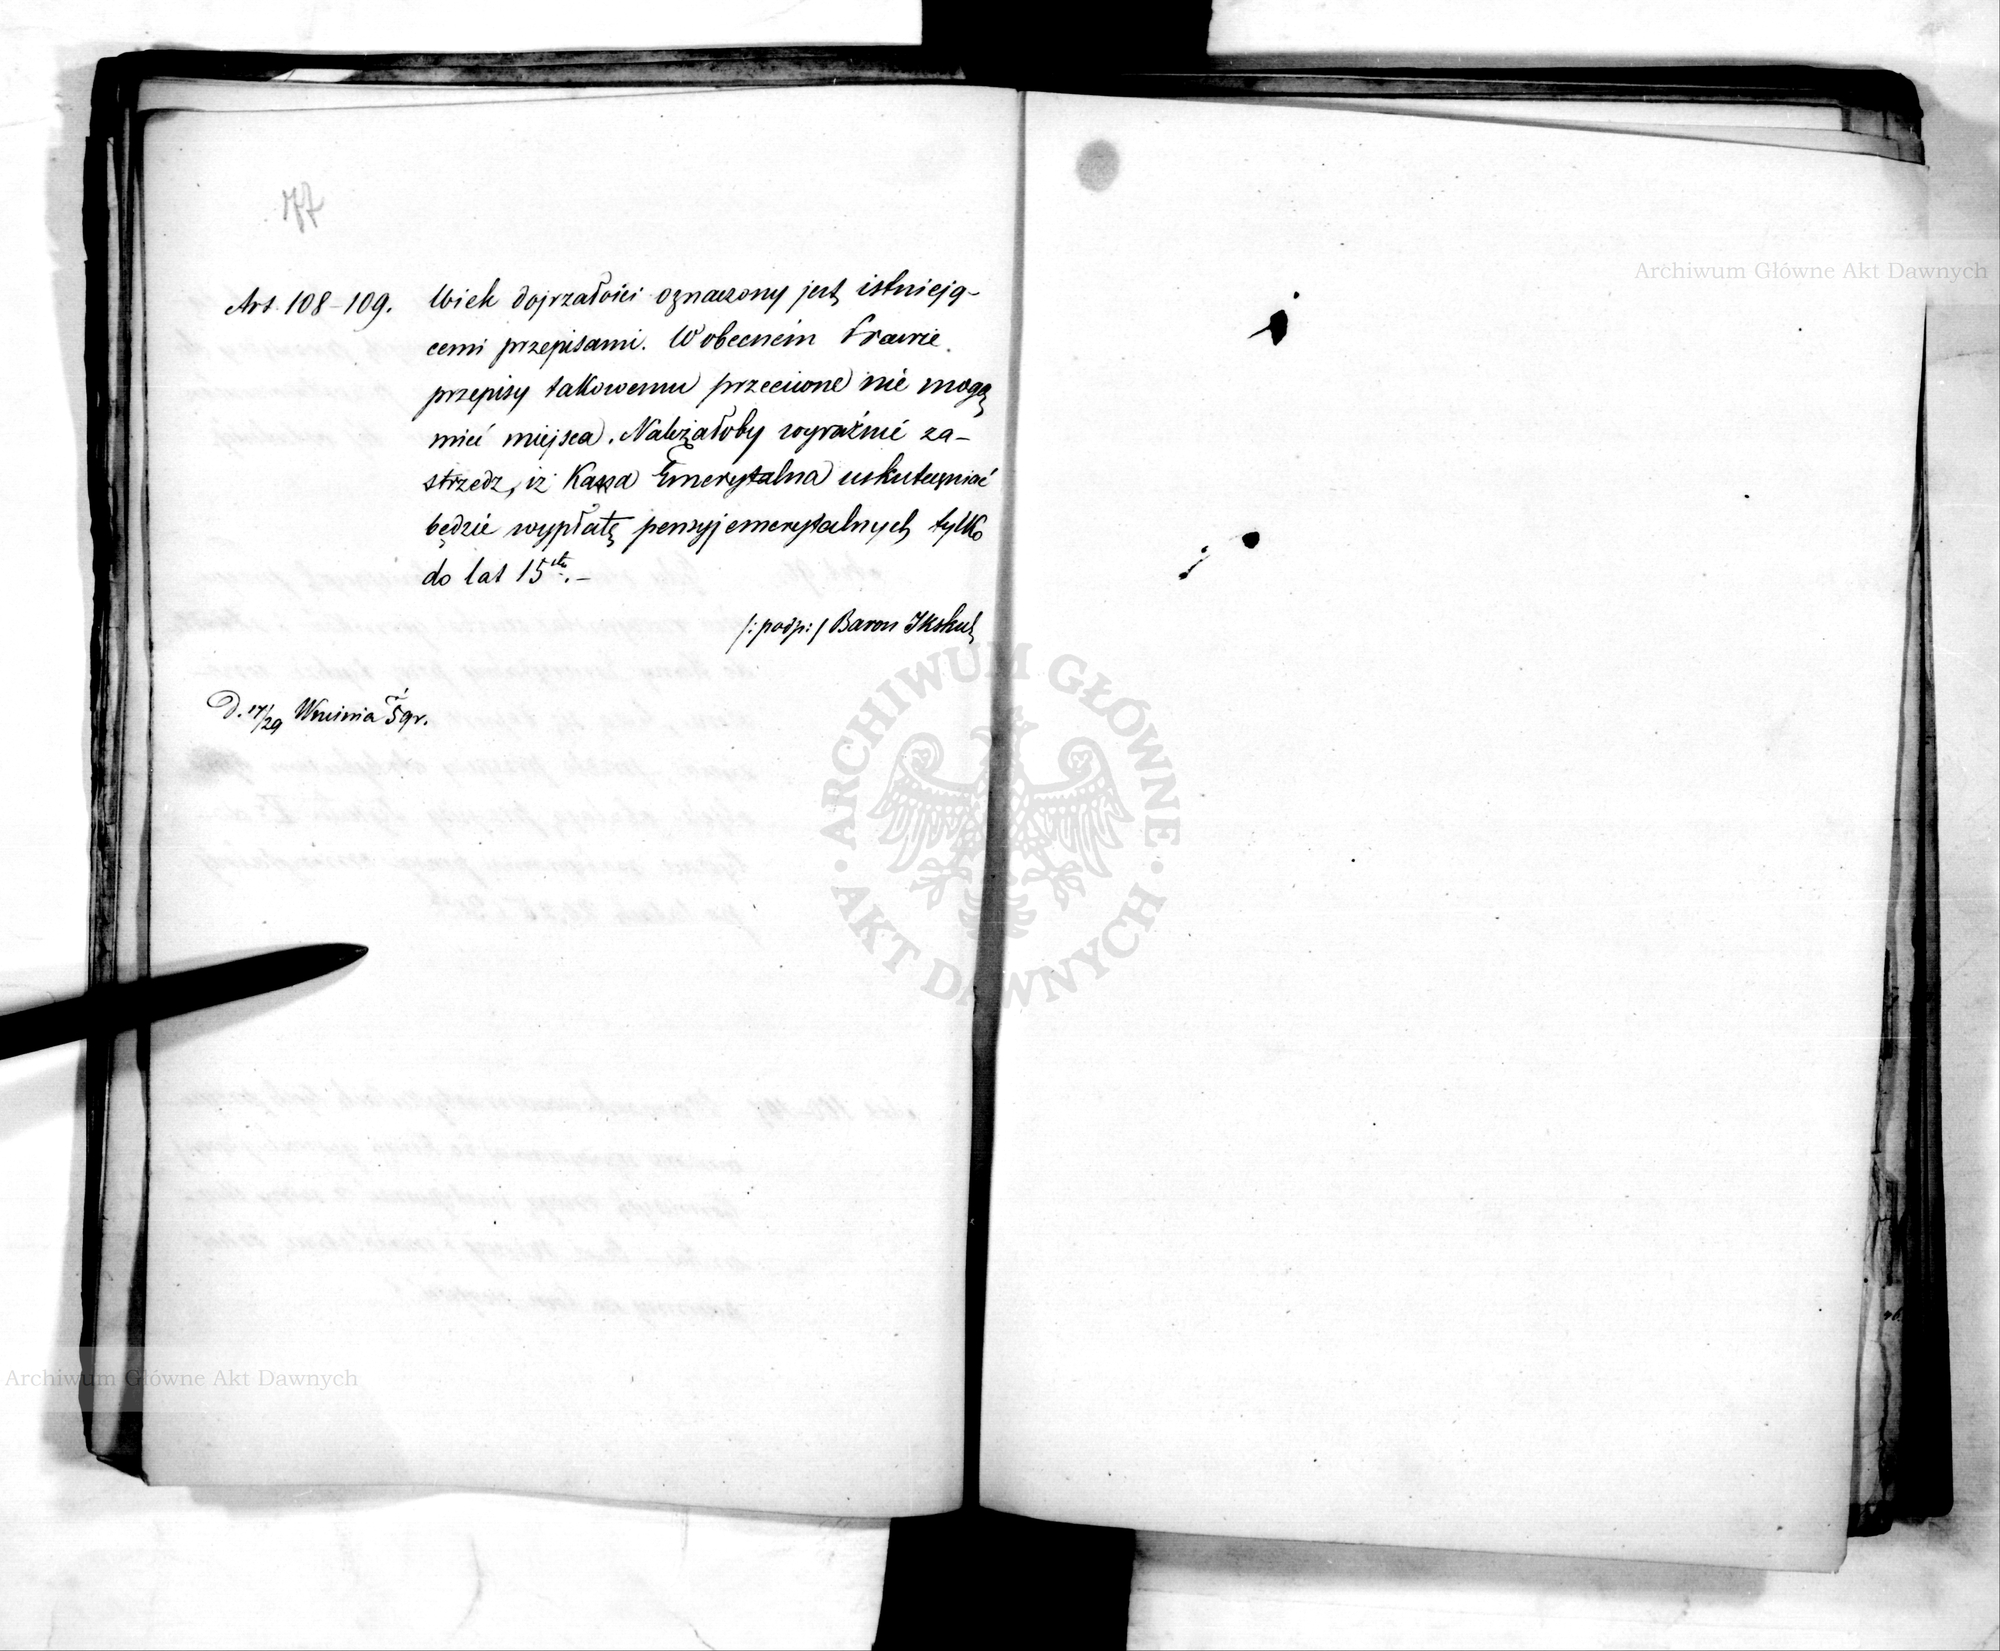 77
Art. 108–109. Wiek dojrzałości oznaczony jest istnieją-
cemi przepisami. W obecném Prawie
przepisy takowemu przeciwne nie mogą
mieć miejsca. Należałoby wyraźnie za-
strzedz, iż Kassa Emerytalna uskuteczniać
będzie wypłatę pensyj emerytalnych tylko
do lat 15tu.–
/:podp:/ Baron Ikskul
D. 17/29 Września 59 r.
Archiwum Główne Akt Dawnych
ARCHIWUM GŁÓWNE · AKT DAWNYCH ·
Archiwum Główne Akt Dawnych